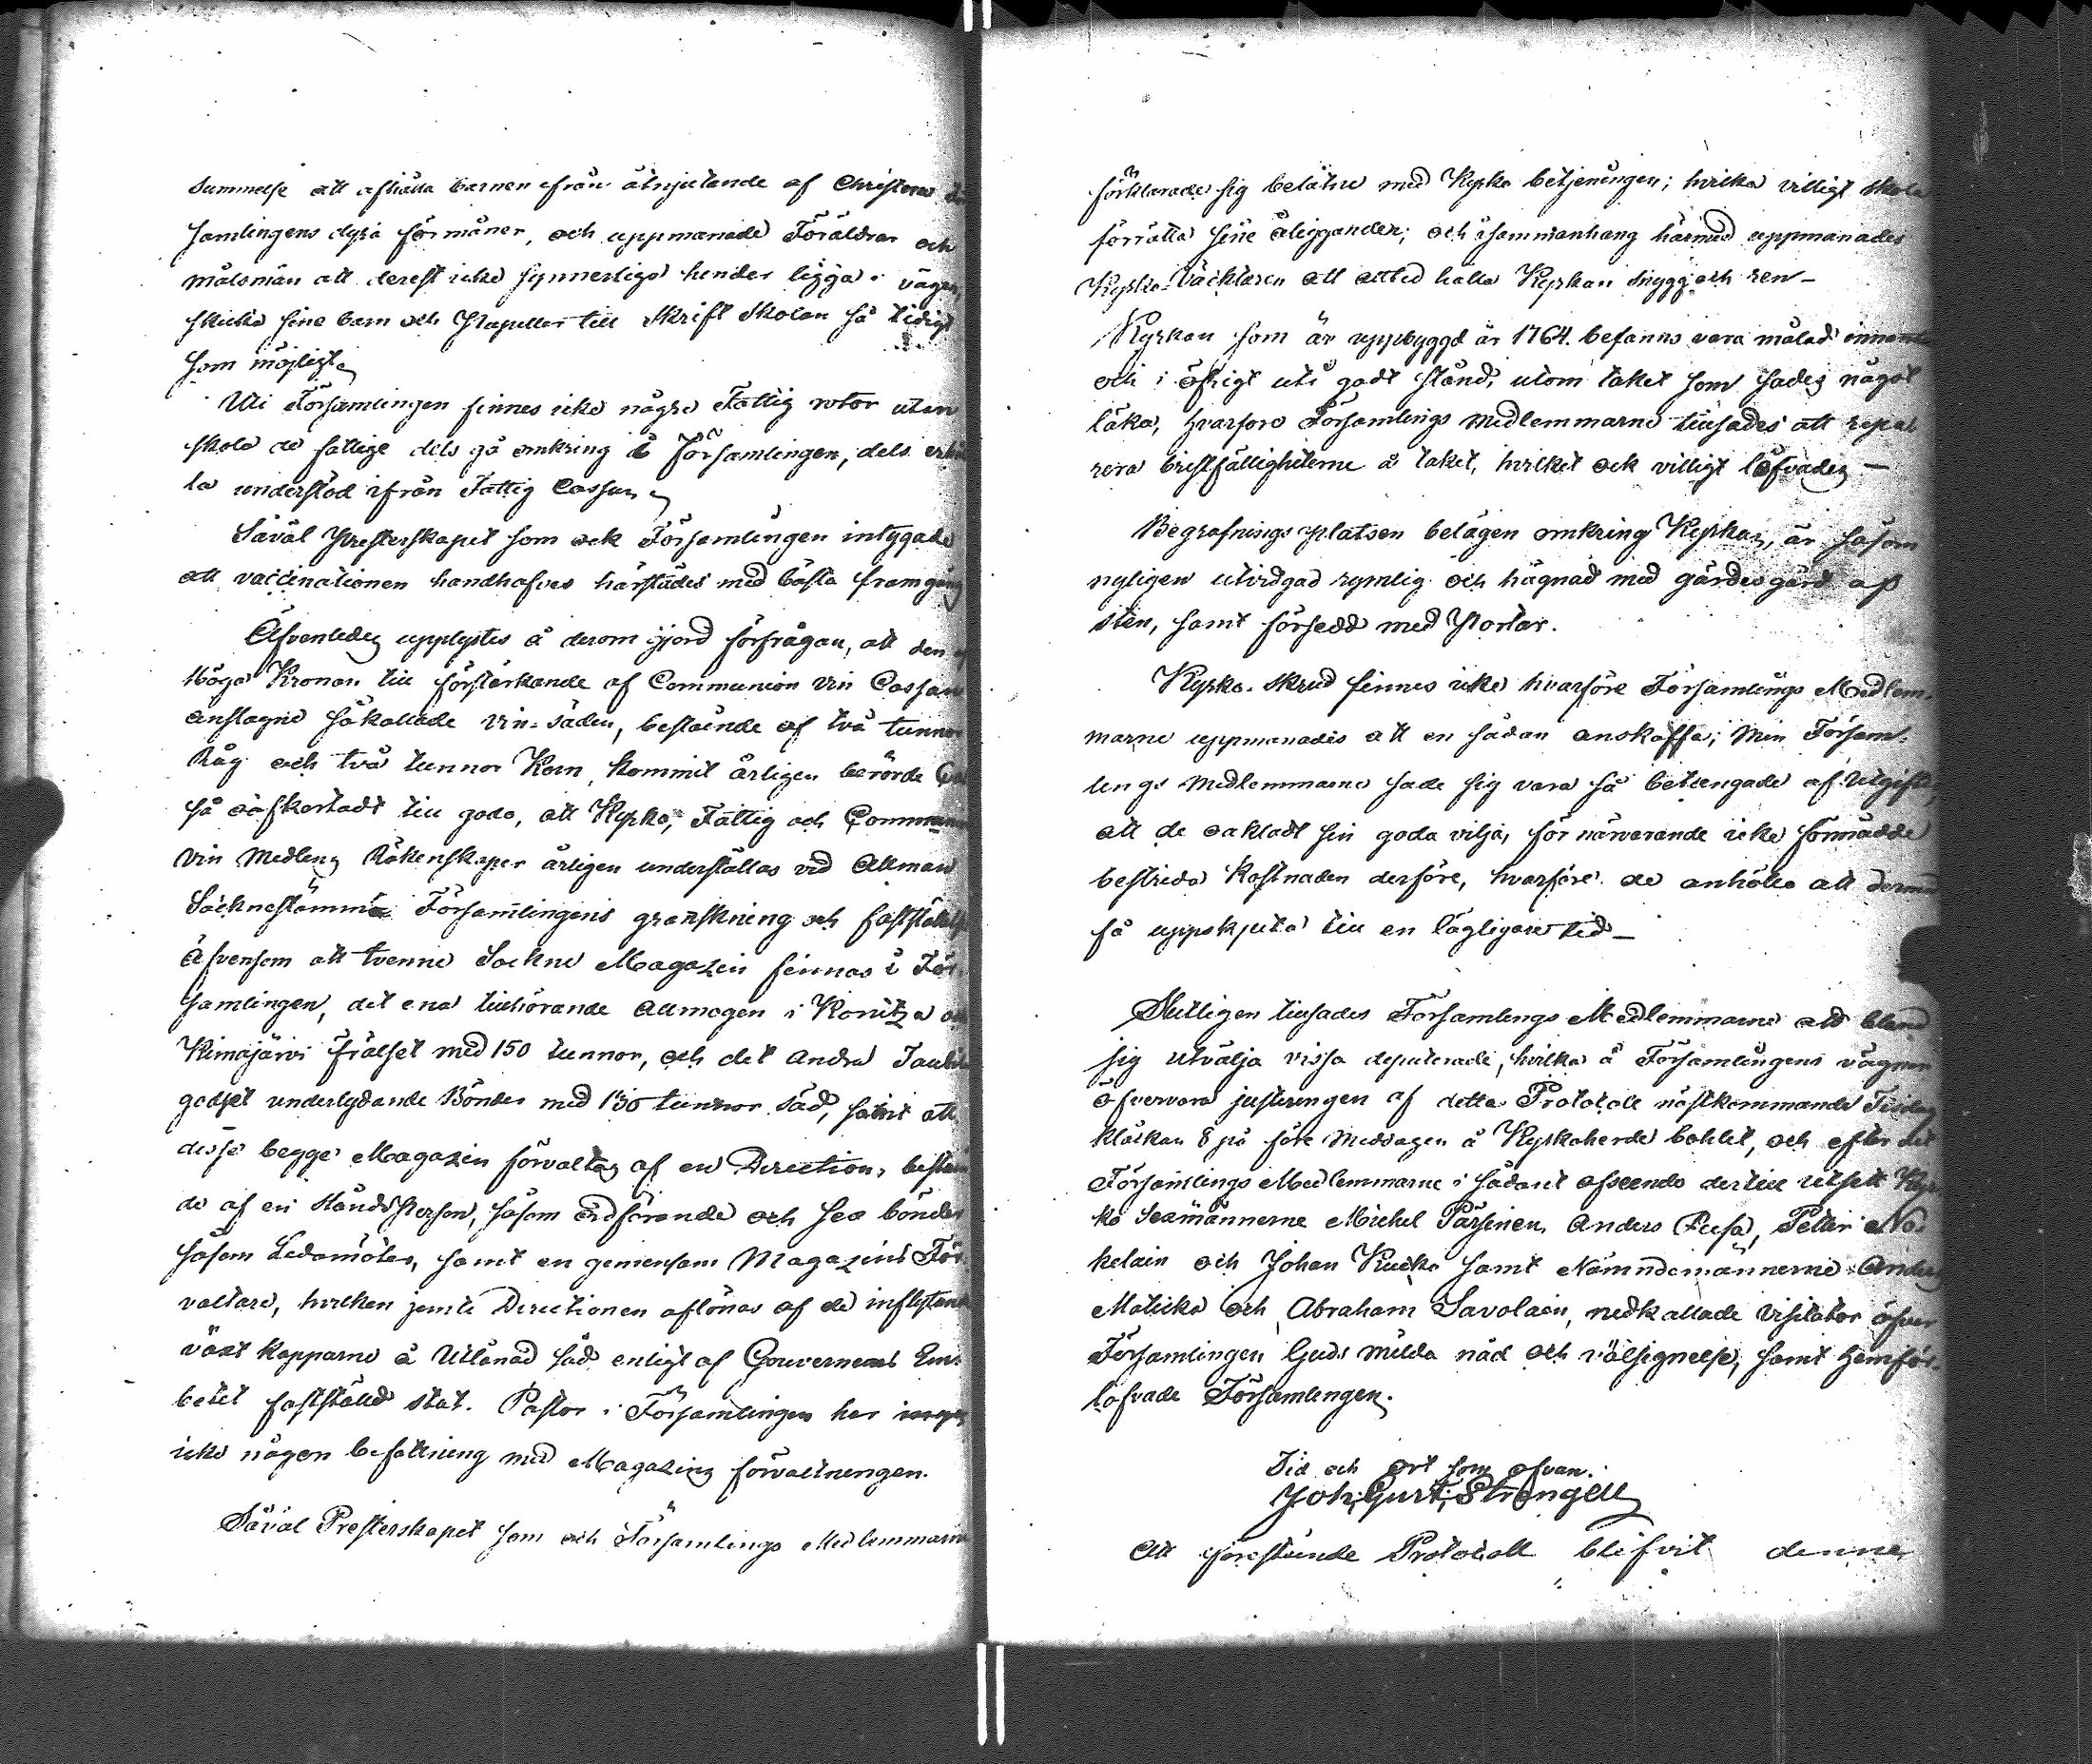 summelse att afhålla barnen ifrån åtnjutande af Christna
samlingens dyra förmåner, och uppmanade Föräldrar och
målsmän att derest icke synnerliga hinder ligga i vägen,
skicka sine barn och Pupeller till Skrift Skolan så tidigt
som möjligt
Uti Församlingen finnes icke några Fattig rotar utan
skola de fattige dels gå omkring i Församlingen, dels erhål
la understöd ifrån Fattig Cassan
Såväl Presterskapet som ock Församlingen intygade
att vaccinationen handhafves härstädes med bästa framgång
Äfvenledes upplystes å derom gjord förfrågan, att den af
Höga Kronan till förstärkande af Communion vin Cassan
anslagne såkallade vin-säden, bestående af två tunnor
Råg och två tunnor Korn, kommit årligen berörde
så oafkortadt till godo, att Kyrko, Fattig och Commun
vin Medlens Räkenskaper årligen underställas vid Allmän
Socknestämma Församlingens granskning och fastställelse
Äfvensom att tvenne Sockne Magazin finnas i För
samlingen, det ena tillhörande Allmogen i Konitza och
Kimajärvi frälset med 150 tunnor, och det andra
godset underlydande Bönder med 130 tunnor säd, samt att
desse begge Magazin förvaltas af en Direction, beståen
de af en Ståndsperson, såsom ordförande och sex bönder
såsom Ledamöter, samt en gemensam Magazins För
valtare, hvilken jemte Directionen aflönas af de inflytande
växt kapparne å Utlånad säd enligt af Gouvernements Em
betet fastställd stat. Pastor i Församlingen har
icke någon befattning med Magazins förvaltningen.
Såväl Presterskapet som och Församlings Medlemmarne
förklarade sig belåtne med Kyrko betjeningen; hvilka villigt skola
förrätta sine åligganden; och i sammanhang härmed uppmanades
Kyrko-Väcktaren att alltid hålla Kyrkan snygg och ren –
Kyrkan som är uppbyggd år 1764. befanns vara målad innan
och i öfrigt uti godt stånd, utom taket som sades något
läka, hvarfore Församlings Medlemmarne tillsades att repa
rera bristfälligheterne å taket, hvilket ock villigt löfvades –
Begrafnings platsen belägen omkring Kyrkan, är såsom
nyligen utvidgad rymlig och hägnad med gärdesgård af
sten, samt försedd med Portar.
Kyrko-skrud finnes icke hvarföre Församlings Medlem-
marne uppmanades att en sådan anskaffa; Men Försam-
lings Medlemmarne sade sig vara så betungade af Utgifter
att de oaktadt sin goda vilja, för närvarande icke förmådde
bestrida kostnaden derföre, hvarföre de anhöllo att dermed
få uppskjuta till en lägligare tid –
Slutligen tillsades Församlings Medlemmarne att bland
sig utvälja vissa deputerade, hvilka å Församlingens vägnar
öfvervara justeringen af detta Protokoll nästkommande Tisdag
klockan 8 på före Middagen å Kyrkoherde bohlet, och efter det
Församlings Medlemmarne i sådant afseende dertill utsett Kyr
ko Sexmännerne Michel Pärsinen, Anders Peusa, Petter No-
kelain och Johan Kucko samt Nämndemännerne Anders
Maticka och Abraham Savolain, nedkallade Visitator öfver
Församlingen Guds milda nåd och välsignelse, samt hemför-
lofvade Församlingen.
Tid och Ort som ofvan.
Joh: Gust: Strengell
Att förestående Protokoll blifvit denne